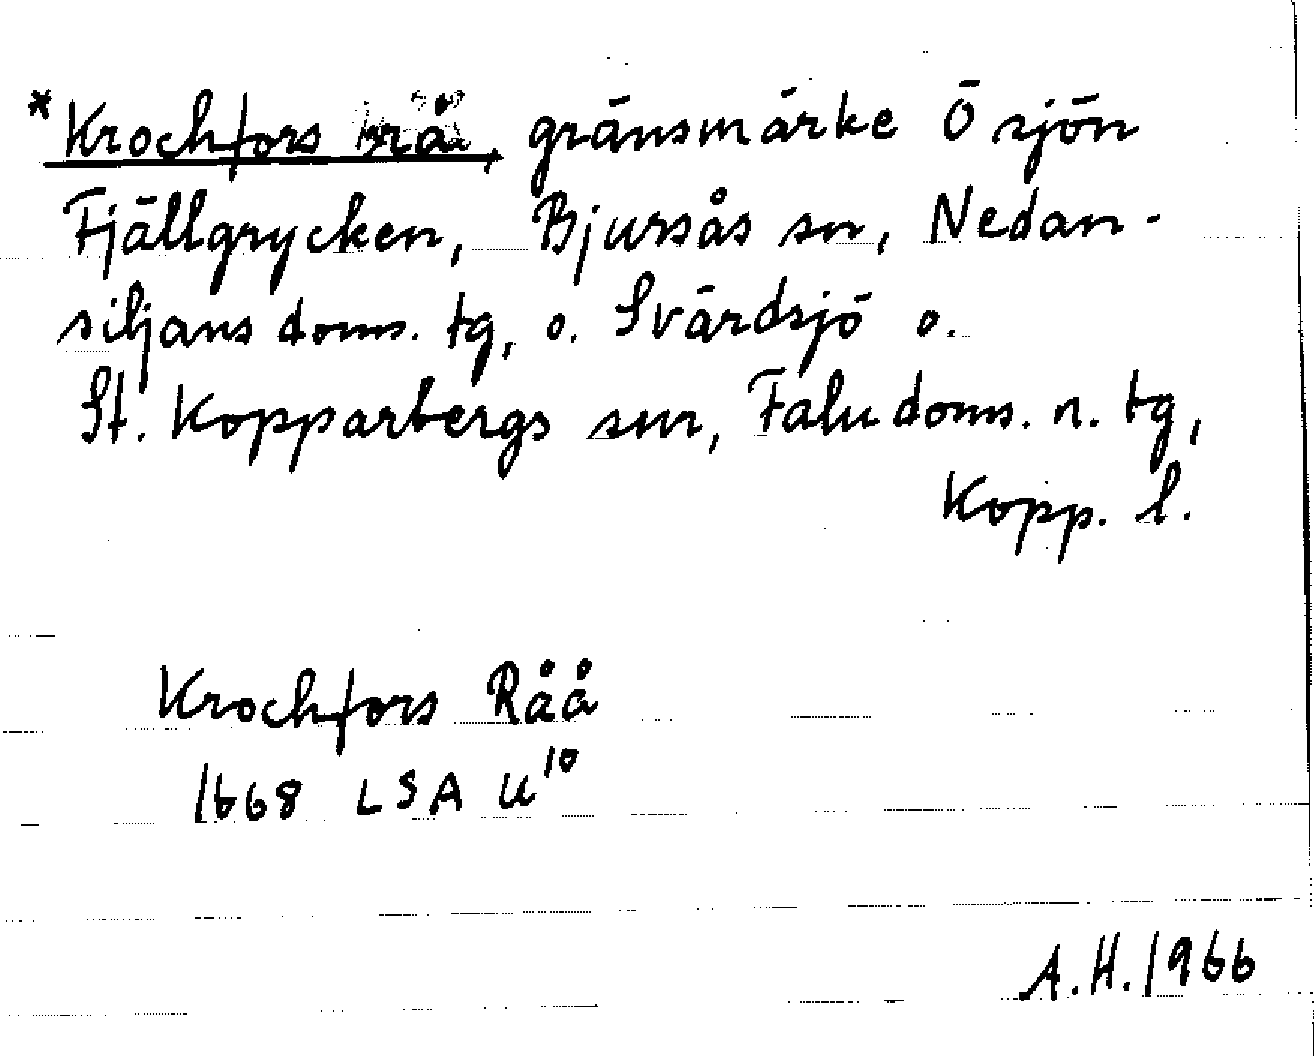 *Krochfors rå, gränsmärke Ö sjön
Fjällgrycken, Bjursås sn, Nedan-
siljans doms. tg, o. Svärdsjö o.
St. Kopparbergs snr, Falu doms. n. tg,
Kopp. l.
Krochfors Råå
1668 LSA U10
A.H. 1966